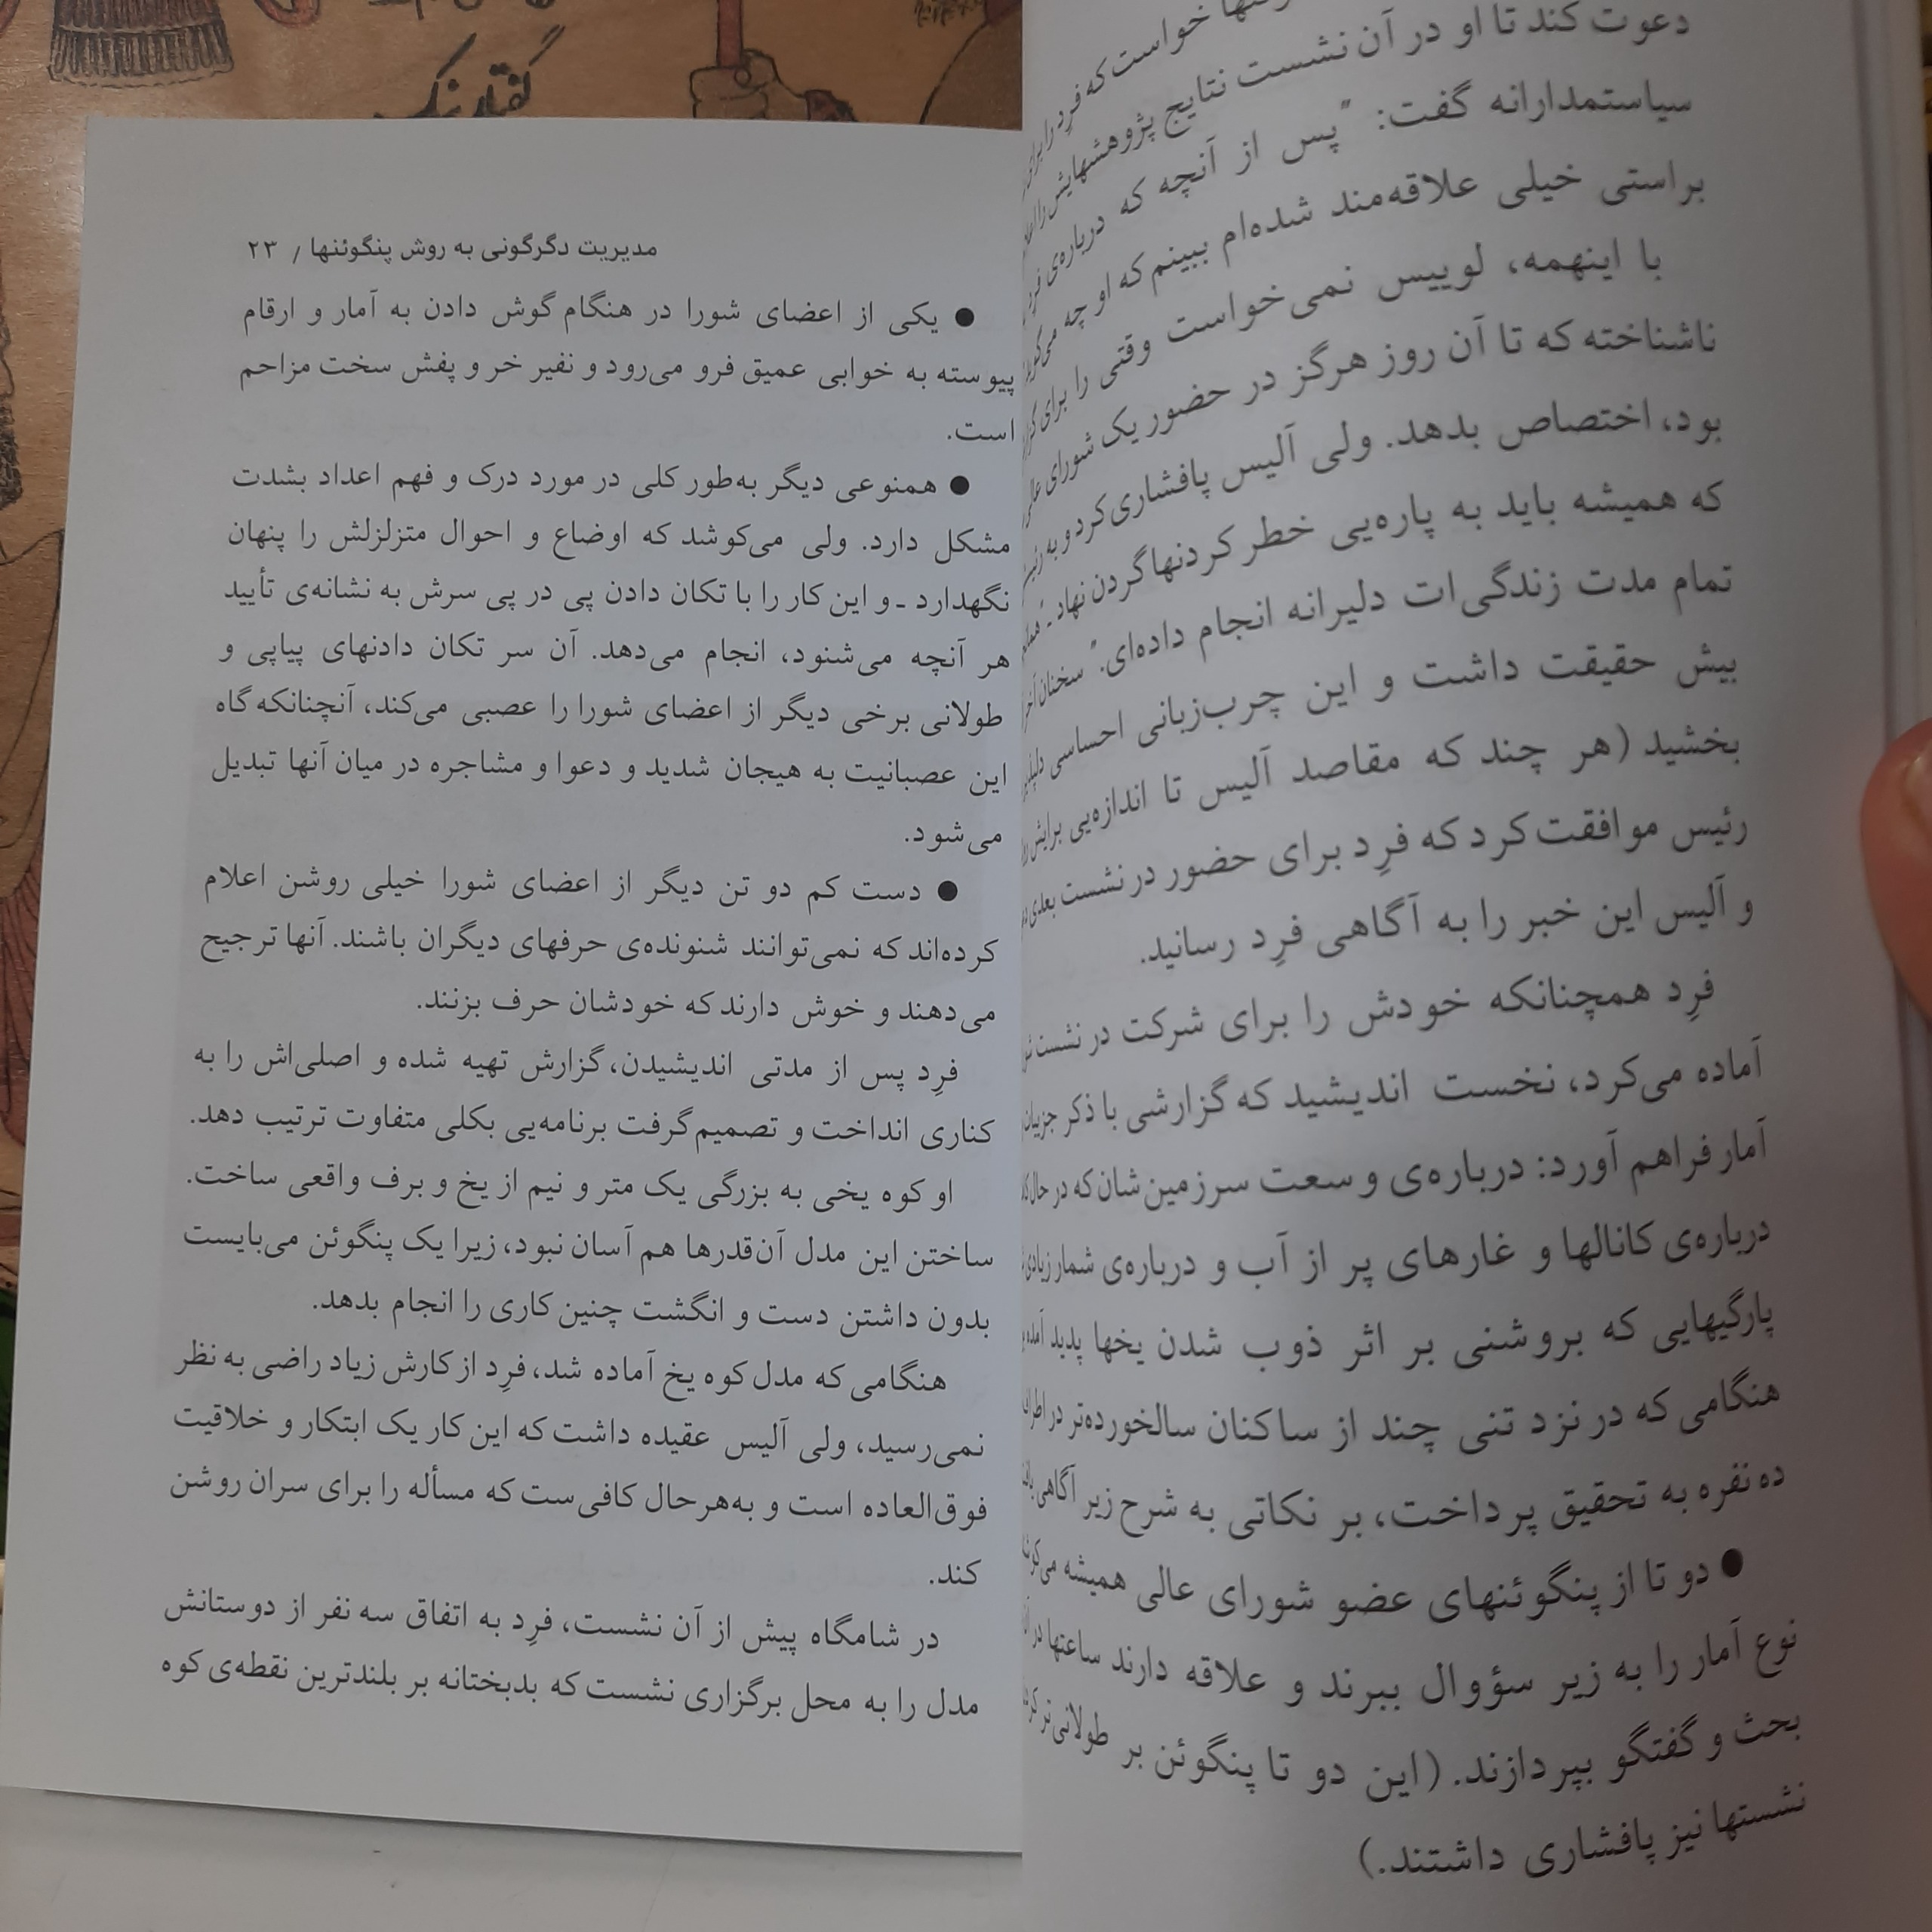 خواست که فرِد را برای
دعوت کند تا او در آن نشست نتایج پژوهشهایش را
سیاستمدارانه گفت: "پس از آنچه که درباره‌ی
براستی خیلی علاقه‌مند شده‌ام ببینم که او چه
با اینهمه، لوییس نمی‌خواست وقتی را برای
ناشناخته که تا آن روز هرگز در حضور یک شورای
بود، اختصاص بدهد. ولی آلیس پافشاری کرد و به
که همیشه باید به پاره‌یی خطر کردنها گردن نهاد ـ
تمام مدت زندگی‌ات دلیرانه انجام داده‌ای." سخنان
بیش حقیقت داشت و این چرب‌زبانی احساسی
بخشید (هر چند که مقاصد آلیس تا اندازه‌یی برایش
رئیس موافقت کرد که فرِد برای حضور در نشست بعدی
و آلیس این خبر را به آگاهی فرِد رسانید.
فرِد همچنانکه خودش را برای شرکت در نشست
آماده می‌کرد، نخست اندیشید که گزارشی با ذکر
آمار فراهم آورد: درباره‌ی وسعت سرزمین‌شان که در حال
درباره‌ی کانالها و غارهای پر از آب و درباره‌ی شمار
پارگیهایی که بروشنی بر اثر ذوب شدن یخها پدید
هنگامی که در نزد تنی چند از ساکنان سالخورده‌تر در
ده نفره به تحقیق پرداخت، بر نکاتی به شرح زیر آگاهی
● دو تا از پنگوئنهای عضو شورای عالی همیشه
نوع آمار را به زیر سؤوال ببرند و علاقه دارند ساعتها در
بحث و گفتگو بپردازند. (این دو تا پنگوئن بر طولانی‌تر
نشستها نیز پافشاری داشتند.)
مدیریت دگرگونی به روش پنگوئنها / ۲۳
● یکی از اعضای شورا در هنگام گوش دادن به آمار و ارقام
پیوسته به خوابی عمیق فرو می‌رود و نفیر خر و پفش سخت مزاحم
است.
● همنوعی دیگر به‌طور کلی در مورد درک و فهم اعداد بشدت
مشکل دارد. ولی می‌کوشد که اوضاع و احوال متزلزلش را پنهان
نگهدارد ـ و این کار را با تکان دادن پی در پی سرش به نشانه‌ی تأیید
هر آنچه می‌شنود، انجام می‌دهد. آن سر تکان دادنهای پیاپی و
طولانی برخی دیگر از اعضای شورا را عصبی می‌کند، آنچنانکه گاه
این عصبانیت به هیجان شدید و دعوا و مشاجره در میان آنها تبدیل
می‌شود.
● دست کم دو تن دیگر از اعضای شورا خیلی روشن اعلام
کرده‌اند که نمی‌توانند شنونده‌ی حرفهای دیگران باشند. آنها ترجیح
می‌دهند و خوش دارند که خودشان حرف بزنند.
فرِد پس از مدتی اندیشیدن، گزارش تهیه شده و اصلی‌اش را به
کناری انداخت و تصمیم گرفت برنامه‌یی بکلی متفاوت ترتیب دهد.
او کوه یخی به بزرگی یک متر و نیم از یخ و برف واقعی ساخت.
ساختن این مدل آن‌قدرها هم آسان نبود، زیرا یک پنگوئن می‌بایست
بدون داشتن دست و انگشت چنین کاری را انجام بدهد.
هنگامی که مدل کوه یخ آماده شد، فرِد از کارش زیاد راضی به نظر
نمی‌رسید، ولی آلیس عقیده داشت که این کار یک ابتکار و خلاقیت
فوق‌العاده است و به‌هرحال کافی‌ست که مسأله را برای سران روشن
کند.
در شامگاه پیش از آن نشست، فرِد به اتفاق سه نفر از دوستانش
مدل را به محل برگزاری نشست که بدبختانه بر بلندترین نقطه‌ی کوه